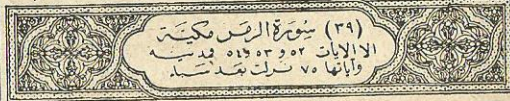 (٣٩) سُورَة الزمر مكيَّة
الا الايات ٥٢ و ٥٣ و ٥٤ فمدنيه
وآياتها ٧٥ نزلت بعد سبأ